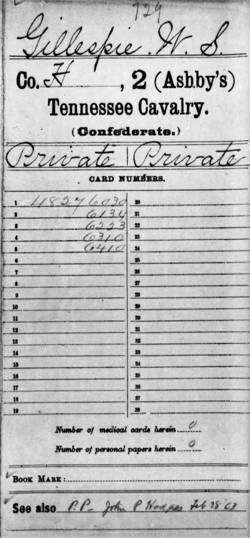 729
Gillespie W. S.
Co. H, 2 (Ashby's)
Tennessee Cavalry.
(Confederate.)
Private | Private
CARD NUMBERS.
1 48276030 20
2 6134 21
3 6223 22
4 6310 23
5 6410 24
6 25
7 26
8 27
9 28
10 29
11 30
12 31
13 32
14 33
15 34
16 35
17 36
18 37
19 38
Number of medical cards herein 0
Number of personal papers herein 0
BOOK MARK:
See also P.P. John P Feb 28 63